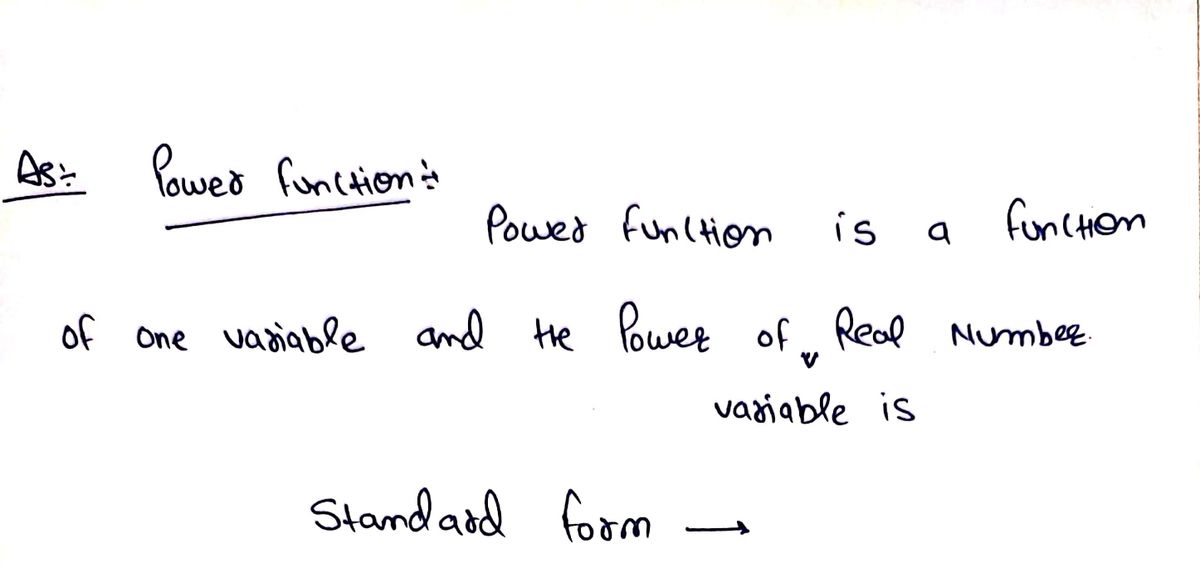 As:- Power function:-
Power function is a function
of one variable and the Power of Real Number.
variable is
Standard form →